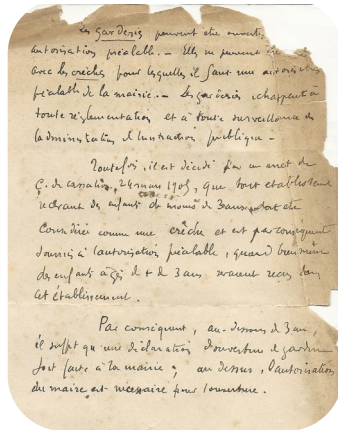 Les garderies peuvent être ouvertes
autorisation préalable. — Elles ne peuvent
avec les crèches pour lesquelles il faut une autorisation
préalable de la mairie. — Les garderies échappent à
toute réglementation et à toute surveillance de
l'administration de l'instruction publique —
Toutefois, il est décidé par un arrêt de
C. de cassation, 24 mars 1905, que tout établissement
recevant des enfants de moins de 3 ans doit être
considéré comme une crèche et est par conséquent
soumis à l'autorisation préalable, quand bien même
des enfants âgés de + de 3 ans seraient reçus dans
cet établissement.
Par conséquent, au-dessus de 3 ans,
il suffit qu'une déclaration d'ouverture de garderie
soit faite à la mairie ; au dessus, l'autorisation
du maire est nécessaire pour l'ouverture.